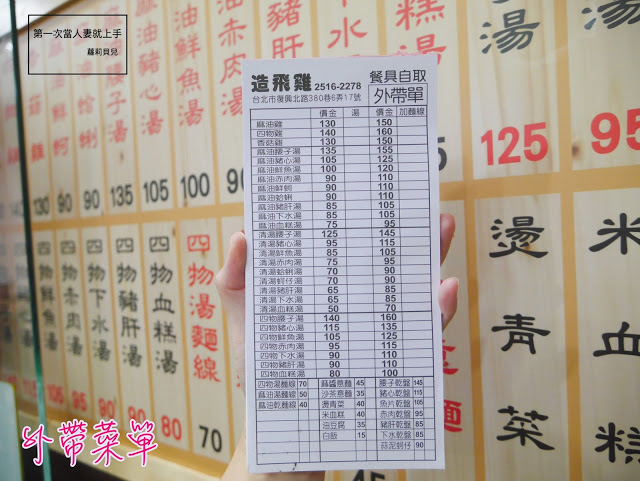 第一次當人妻就上手
蘿莉貝兒
造飛雞 2516-2278 餐具自取
台北市復興北路380巷6弄17號 外帶單
價金 湯 價金 加麵線
麻油雞 130 150
四物雞 140 160
香菇雞 130 150
麻油腰子湯 135 155
麻油豬心湯 105 125
麻油鮮魚湯 100 120
麻油赤肉湯 90 110
麻油鮮蚵 90 110
麻油蛤蜊 90 110
麻油豬肝湯 85 105
麻油下水湯 85 105
麻油血糕湯 75 95
清湯腰子湯 125 145
清湯豬心湯 95 115
清湯鮮魚湯 85 105
清湯赤肉湯 75 95
清湯蛤蜊湯 70 90
清湯蚵仔湯 70 90
清湯豬肝湯 65 85
清湯下水湯 65 85
清湯血糕湯 50 70
四物腰子湯 140 160
四物豬心湯 115 135
四物鮮魚湯 105 125
四物赤肉湯 95 115
四物下水湯 90 110
四物豬肝湯 90 110
四物血糕湯 80 100
四物湯麵線 70 麻醬意麵 45 腰子乾盤 145
麻油湯麵線 50 沙茶意麵 35 豬心乾盤 115
麻油乾麵線 40 燙青菜 40 魚片乾盤 105
米血糕 40 赤肉乾盤 95
油豆腐 35 豬肝乾盤 85
白飯 15 下水乾盤 85
蒜泥蚵仔 90
130 90 90 135 105 100 90
125 95
四物血糕湯 80
四物湯麵線 70
四物豬肝湯
四物赤肉湯
燙青菜
米血糕
外帶菜單